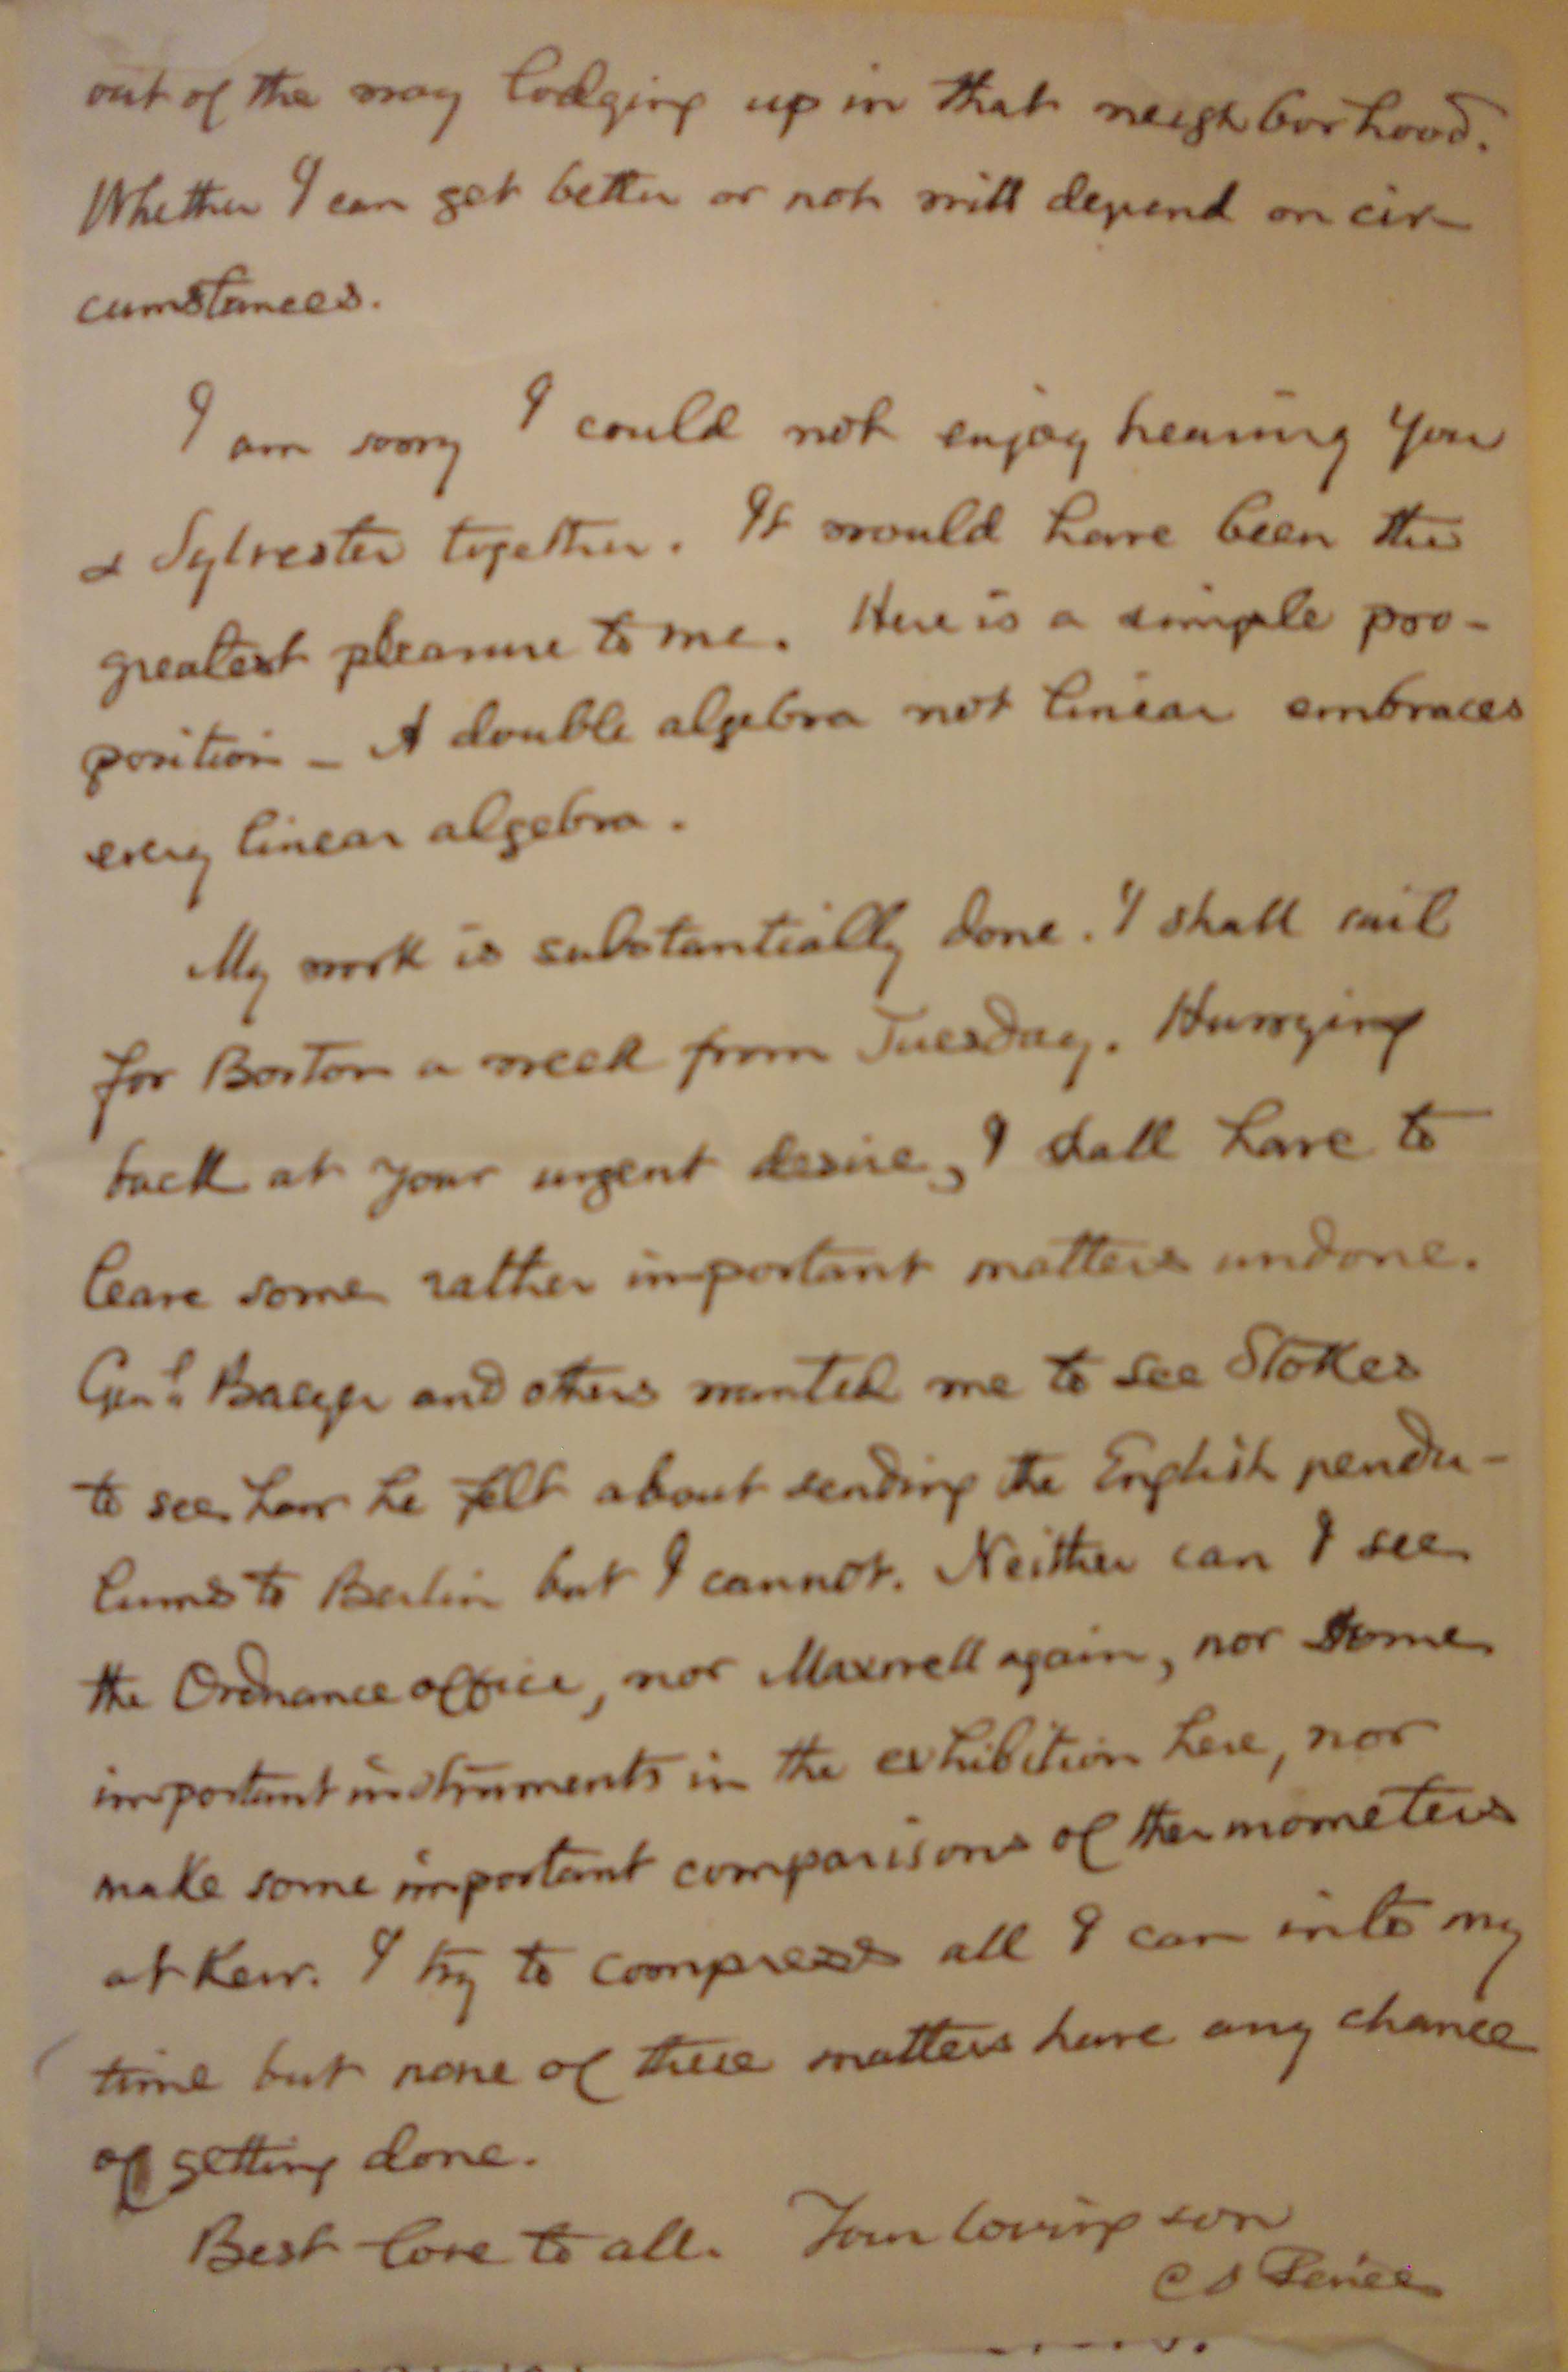 out of the way lodging up in that neighborhood.
Whether I can get better or not will depend on cir-
cumstances.
I am sorry I could not enjoy hearing you
& Sylvester together. It would have been the
greatest pleasure to me. Here is a simple pro-
position – A double algebra not linear embraces
every linear algebra.
My work is substantially done. I shall sail
for Boston a week from Tuesday. Hurrying
back at your urgent desire, I shall have to
leave some rather important matters undone.
Genl. Baeyer and others wanted me to see Stokes
to see how he felt about sending the English pendu-
lums to Berlin but I cannot. Neither can I see
the Ordnance office, nor Maxwell again, nor some
important instruments in the exhibition here, nor
make some important comparisons of thermometers
at Kew. I try to compress all I can into my
time but none of these matters have any chance
of getting done.
Best love to all. Your loving son
C S Peirce